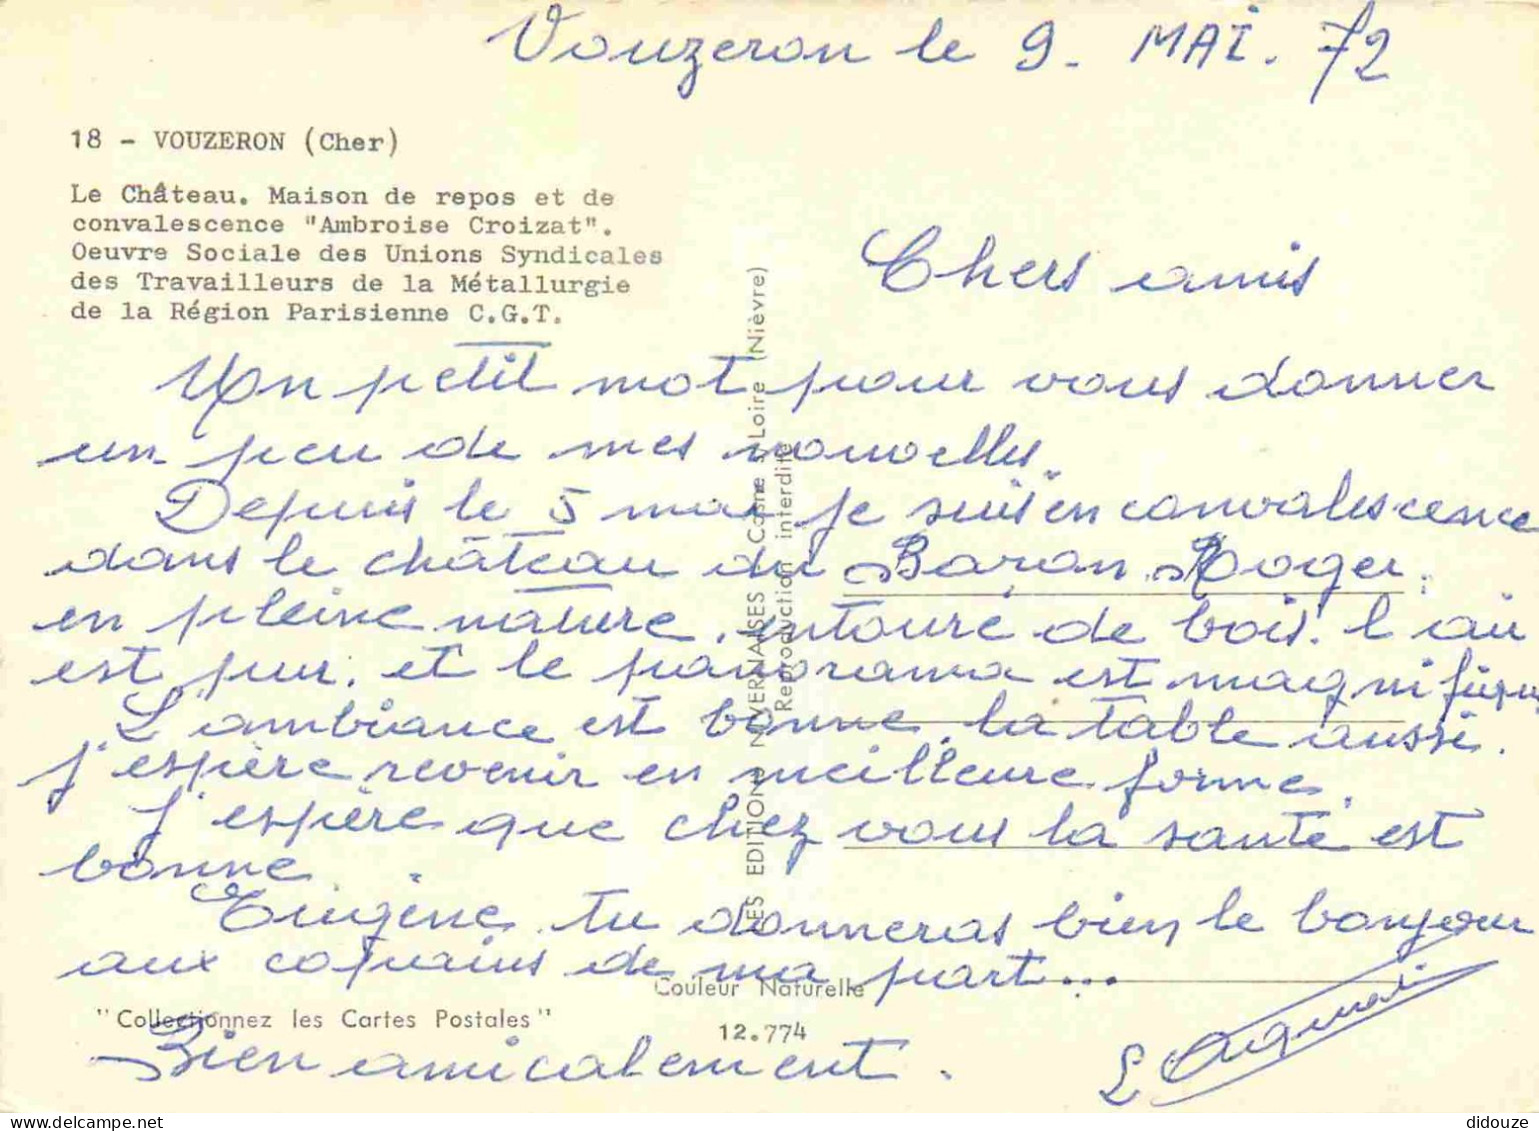 Vouzeron le 9. MAI. 72
18 - VOUZERON (Cher)
Le Château. Maison de repos et de
convalescence "Ambroise Croizat".
Oeuvre Sociale des Unions Syndicales
des Travailleurs de la Métallurgie
de la Région Parisienne C.G.T.
Chers amis
Un petit mot pour vous donner
un peu de mes nouvelles.
Depuis le 5 mai je suis en convalescence
dans le château du Baron Roger.
en pleine nature, entouré de bois. l'air
est pur. et le panorama est magnifique
L'ambiance est bonne, la table aussi.
J'espère revenir en meilleure forme.
J'espère que chez vous la santé est
bonne.
Eugène, tu donneras bien le bonjour
aux copains de ma part...
Bien amicalement.
LES EDITIONS NIVERNAISES Cosne s/Loire (Nièvre)
Reproduction interdite
Couleur Naturelle
"Collectionnez les Cartes Postales"
12.774
delcampe.net
didouze